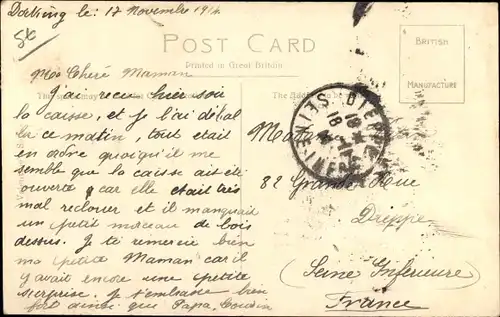 Dorking le: 17 Novembre 1914
POST CARD
Printed in Great Britain
BRITISH
MANUFACTURE
Ma Chère Maman
J'ai recu hier soir
la caisse, et je l'ai débal
lé ce matin, tout était
en ordre quoiqu'il me
semble que la caisse ait été
ouverte car elle était très
mal reclouer et il manquait
un petit morceau de bois
dessus. Je te remercie bien
ma petite Maman car il
y avait encore une petite
surprise. Je t'embrasse bien
fort ainsi que Papa,
The Ad
DIEPPE
SEINE INFRE
18
82 Grande Rue
Dieppe
(Seine Inferieure)
France